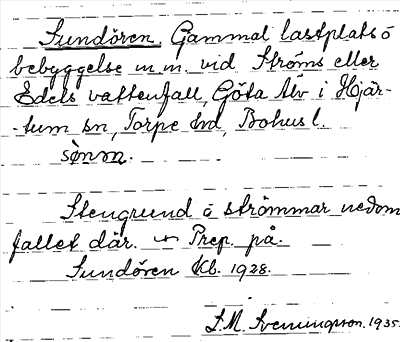 Sundören. Gammal lastplats o
bebyggelse m.m. vid Ströms eller
Edets vattenfall, Göta Älv i Hjär-
-tum sn, Torpe hd, Bohus l.
sònnn.
Stengrund o strömmar nedom
fallet där. ~ Prep. på.
Sundören Kb. 1928.
S.M. Svenungsson. 1935.